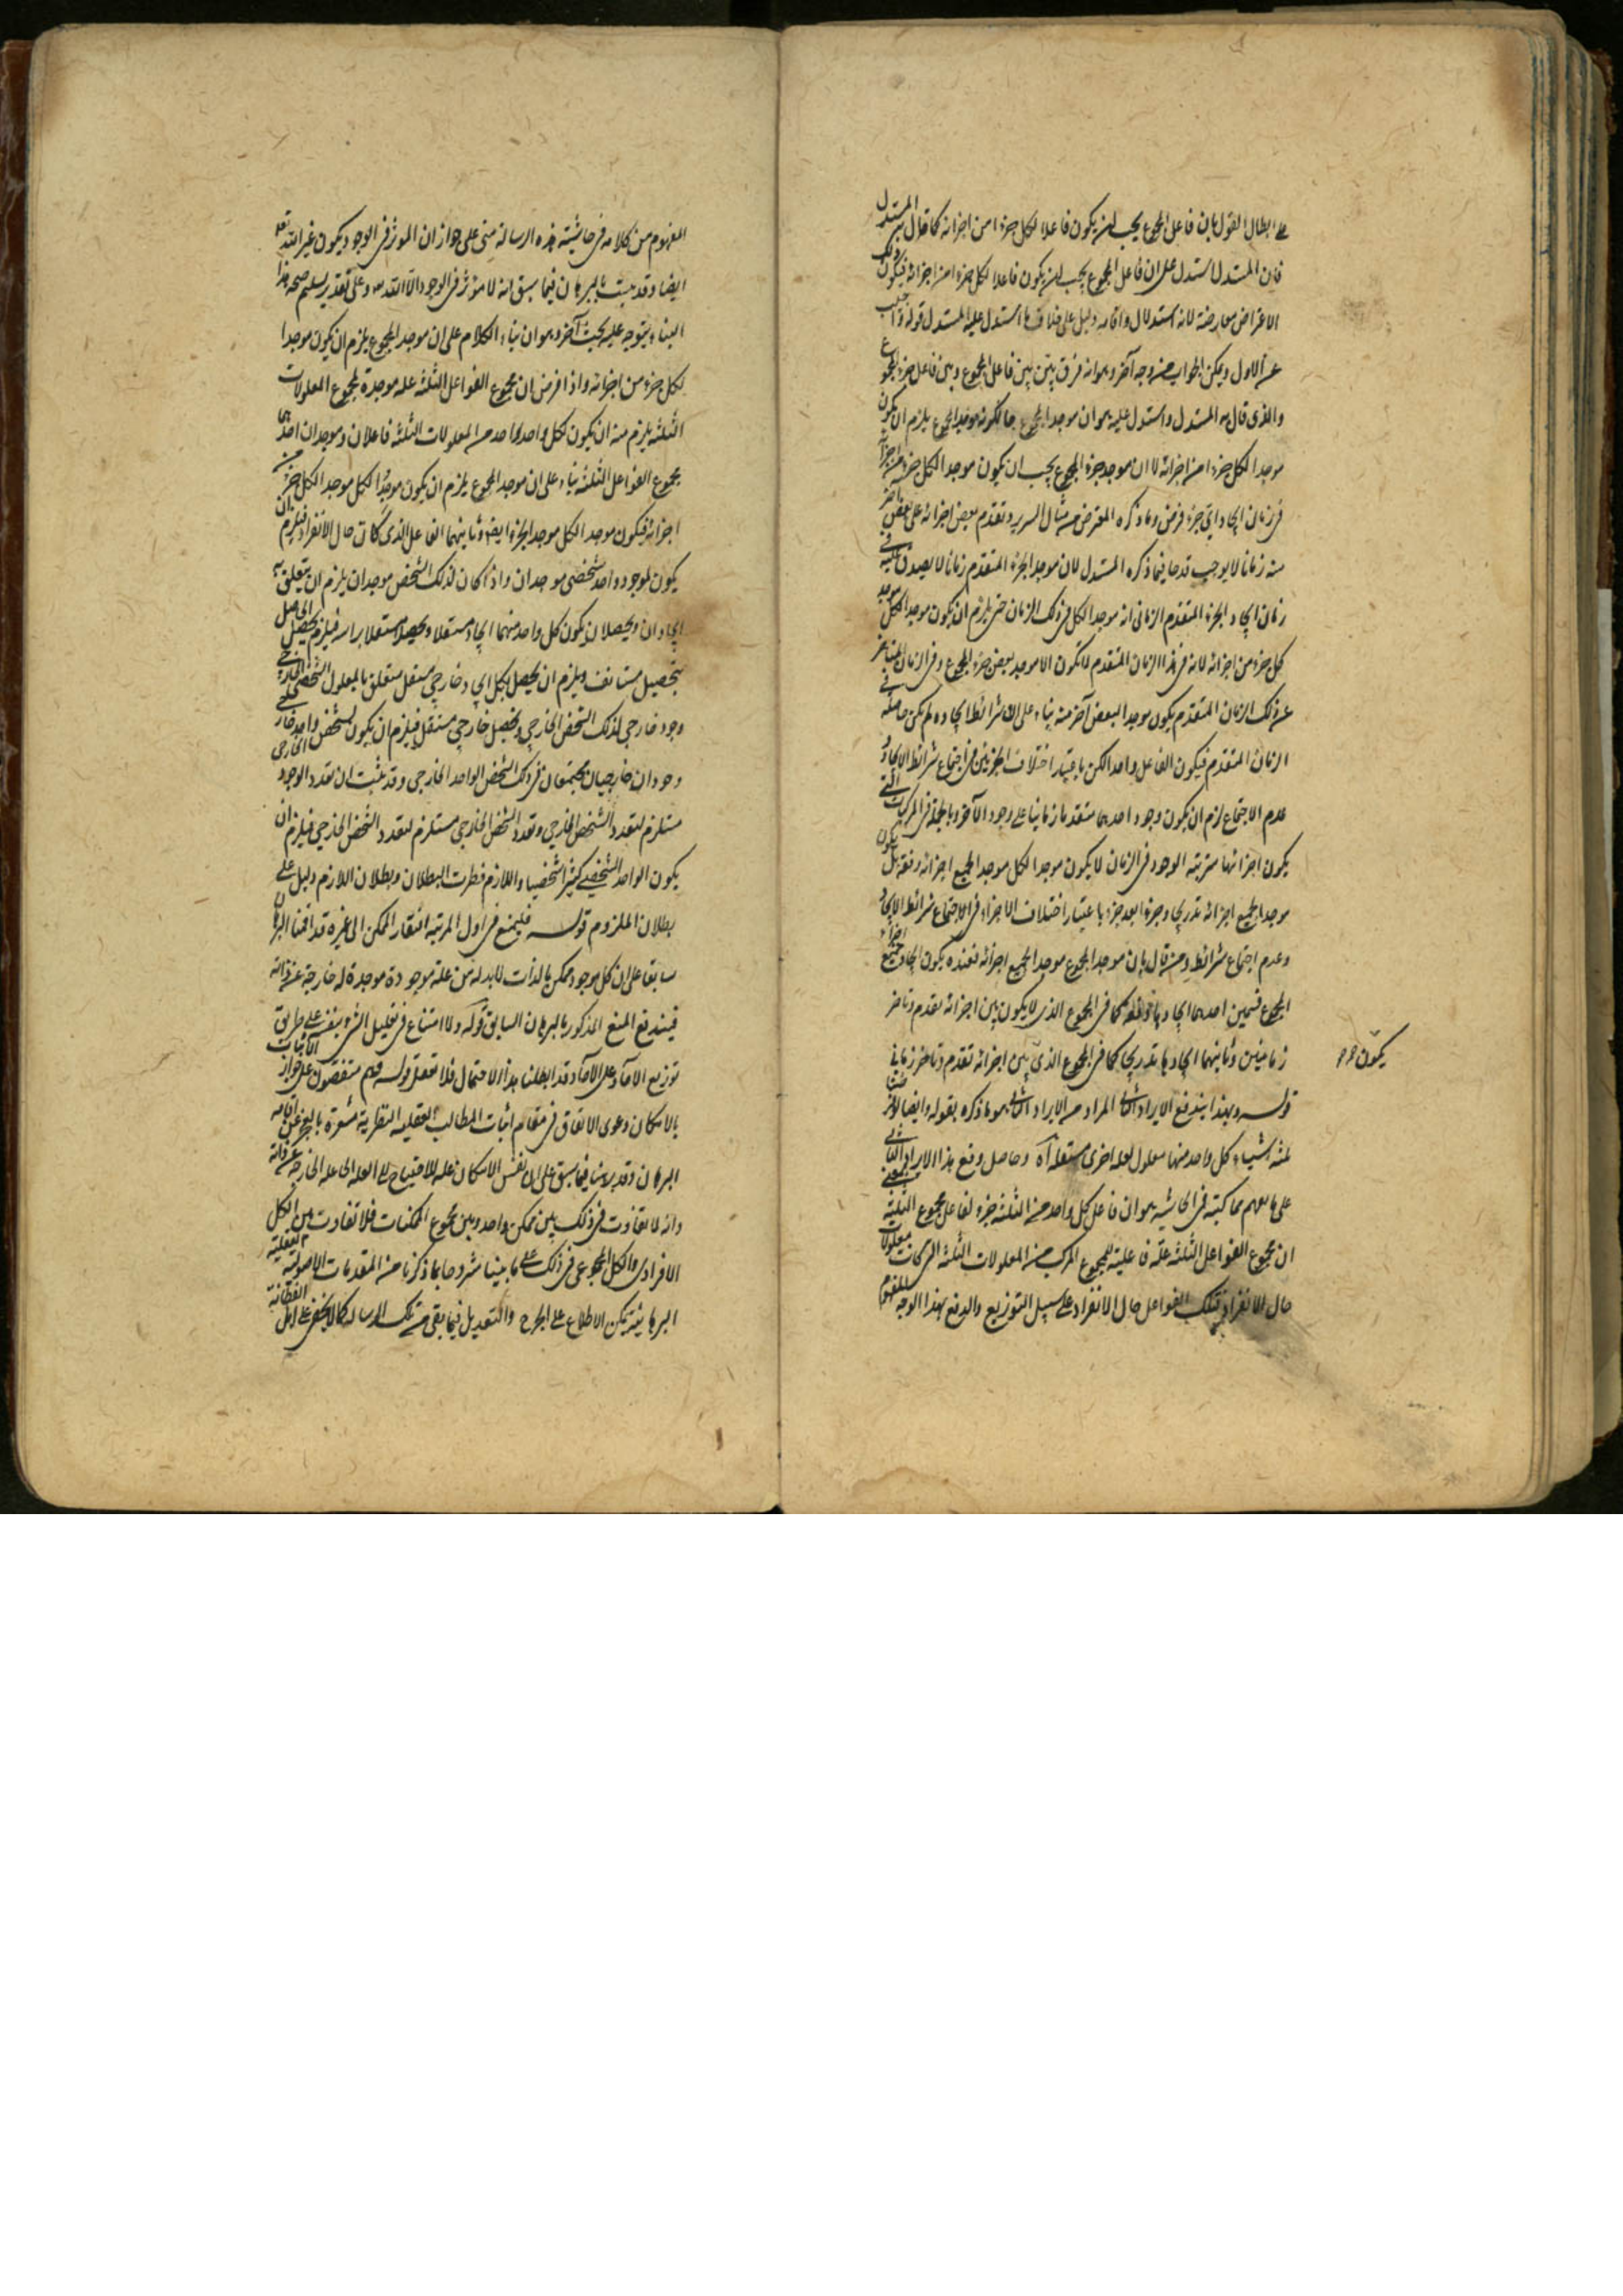 على ابطال القول بان فاعل المجموع يجب ان يكون فاعلا لكل جزء من اجزائه كما قال به المستدل
فان المستدل استدل على ان فاعل المجموع يجب ان يكون فاعلا لكل جزء من اجزائه فيكون ذلك
الاعتراض معارضة لانه استدلال واقامه دليل على خلاف ما استدل عليه المستدل قوله واجيب
عن الاول ويمكن الجواب من وجه آخر وهو انه فرق بيّن بين فاعل المجموع وبين فاعل جزء المجموع
والذى قال به المستدل واستدل عليه هو ان موجد المجموع حال كونه موجد المجموع يلزم ان يكون
موجدا لكل جزء من اجزائه لا ان موجد جزء المجموع يجب ان يكون موجدا لكل جزء من اجزائه
فى زمان ايجاد اىّ جزء فرض وما ذكره المعترض من مثال السرير وتقدم بعض اجزائه على بعض
منه زمانا لا يوجب قدحا فيما ذكره المستدل لان موجد الجزء المتقدم زمانا لا يصدق عليه فى
زمان ايجاد الجزء المتقدم الزمانى انه موجد الكل فى ذلك الزمان حتى يلزم ان يكون موجد الكل موجد
كل جزء من اجزائه لانه فى هذا الزمان المتقدم لا يكون الا موجد بعض جزء المجموع وفى الزمان المتاخر
عن ذلك الزمان المتقدم يكون موجدا لبعض آخر منه بناء على ان شرائط ايجاده لم يكن حاصلة فى
الزمان المتقدم فيكون الفاعل واحدا لكن باعتبار اختلاف الجزئين فى اجتماع شرائط الايجاد و
عدم الاجتماع لزم ان يكون وجود احدهما متقدما زمانيا على وجود الآخر وبالجملة فى المركبات التى
يكون اجزائها مترتبة الوجود فى الزمان لا يكون موجد الكل موجد الجميع اجزائه دفعة بل يكون
موجدا لجميع اجزائه تدريجا وجزءا بعد جزء باعتبار اختلاف الاجزاء فى الاجتماع شرائط الايجاد
وعدم اجتماع شرائطه ومن قال بان موجد المجموع موجد الجميع اجزائه فعنده يكون ايجاد جميع اجزاء
المجموع قسمين احدهما ايجادها دفعة كما فى المجموع الذى لا يكون بين اجزائه تقدم وتاخر
زمانيين وثانيهما ايجادها تدريجا كما فى المجموع الذى بين اجزائه تقدم وتاخر زمانى
يكون
قوله وبهذا يندفع الايراد الثانى المراد من الايراد الثانى هو ما ذكره بقوله وايضا لو فرضنا
ثلثه اشياء كل واحد منها معلول لعله اخرى مستقله آه وحاصل دفع هذا الايراد الثانى
على ما يفهم مما كتبه فى الحاشيه هو ان فاعل كل واحد من الثلثة جزء لفاعل مجموع الثلثة بمعنى
ان مجموع الفواعل الثلثة علّة فاعلية للمجموع المركب من المعلولات الثلثه التى كانت معلولات
حال الانفراد لتلك الفواعل حال الانفراد على سبيل التوزيع والدفع بهذا الوجه
المفهوم من كلامه فى حاشيته هذه الرسالة مبنى على جواز ان المؤثر فى الوجود يكون غير الله تعالى
ايضا وقد ثبت بالبرهان فيما سبق انه لا مؤثر فى الوجود الا الله تعالى وعلى تقدير تسليم صحة هذا
البناء يتوجه عليه بحث آخر وهو ان بناء الكلام على ان موجد المجموع يلزم ان يكون موجدا
لكل جزء من اجزائه واذا فرض ان مجموع الفواعل الثلثة علة موجدة لمجموع المعلولات
الثلثة يلزم منه ان يكون لكل واحد واحد من المعلولات الثلثة فاعلان وموجدان احدهما
مجموع الفواعل الثلثة بناء على ان موجد المجموع يلزم ان يكون موجدا لكل جزء من
اجزائه فيكون موجد الكل موجد الجزء ايضا وثانيهما الفاعل الذى كان حال الانفراد فيلزم ان
يكون لموجود واحد شخصى موجدان واذا كان لذلك الشخص موجدان يلزم ان يتعلق به
ايجادان وتحصيلان يكون كل واحد منهما ايجادا مستقلا وتحصيلا مستقلا براسه فيلزم تحصيل الحاصل
بتحصيل مستانف ويلزم ان يحصل لكل ايجاد خارجى مستقل متعلق بالمعلول الشخصى الخارجى
وجود خارجى لذلك الشخص الخارجى وتحصيل خارجى مستقل فيلزم ان يكون لشخص واحد خارجى
وجودان خارجيان مجتمعان فى ذلك الشخص الواحد الخارجى وقد ثبت ان تعدد الوجود الخارجى
مستلزم لتعدد الشخص الخارجى وتعدد الشخص الخارجى مستلزم لتعدد الشخص الخارجى فيلزم ان
يكون الواحد الشخصى كثيرا شخصيا واللازم فطرت البطلان وبطلان اللازم دليل على
بطلان الملزوم قوله فليمنع فى اول المرتبه افتقار الممكن الى غيره قد اقمنا البرهان
سابقا على ان كل موجود ممكن بالذات لابد له من علة موجودة موجدة له خارجة عن ذاته
فيندفع المنع المذكور بالبرهان السابق قوله ولا امتناع فى تعليل الشىء بنفسه على طريق
توزيع الآحاد على الآحاد قد ابطلنا هذا الاحتمال فلا تغفل قوله فهم متفقون على جواز الاثبات
بالامكان دعوى الاتفاق فى مقام اثبات المطالب العقليه النظرية مشعرة بالعجز عن اقامه
البرهان وقد برهنا فيما سبق على ان نفس الامكان علة للاحتياج الى العله الى عله الخارجه عن ذاته
وانه لا تفاوت فى ذلك بين ممكن واحد وبين مجموع الممكنات فلا تفاوت بين الكل
الافرادى والكل المجموعى فى ذلك على ما بينا مشروحا بما ذكرنا من المقدمات الاصوليه العقلية
البرهانية يمكن الاطلاع على الجرح والتعديل فيما بقى من تلك الرساله كما لا يخفى على اهل الفطانة